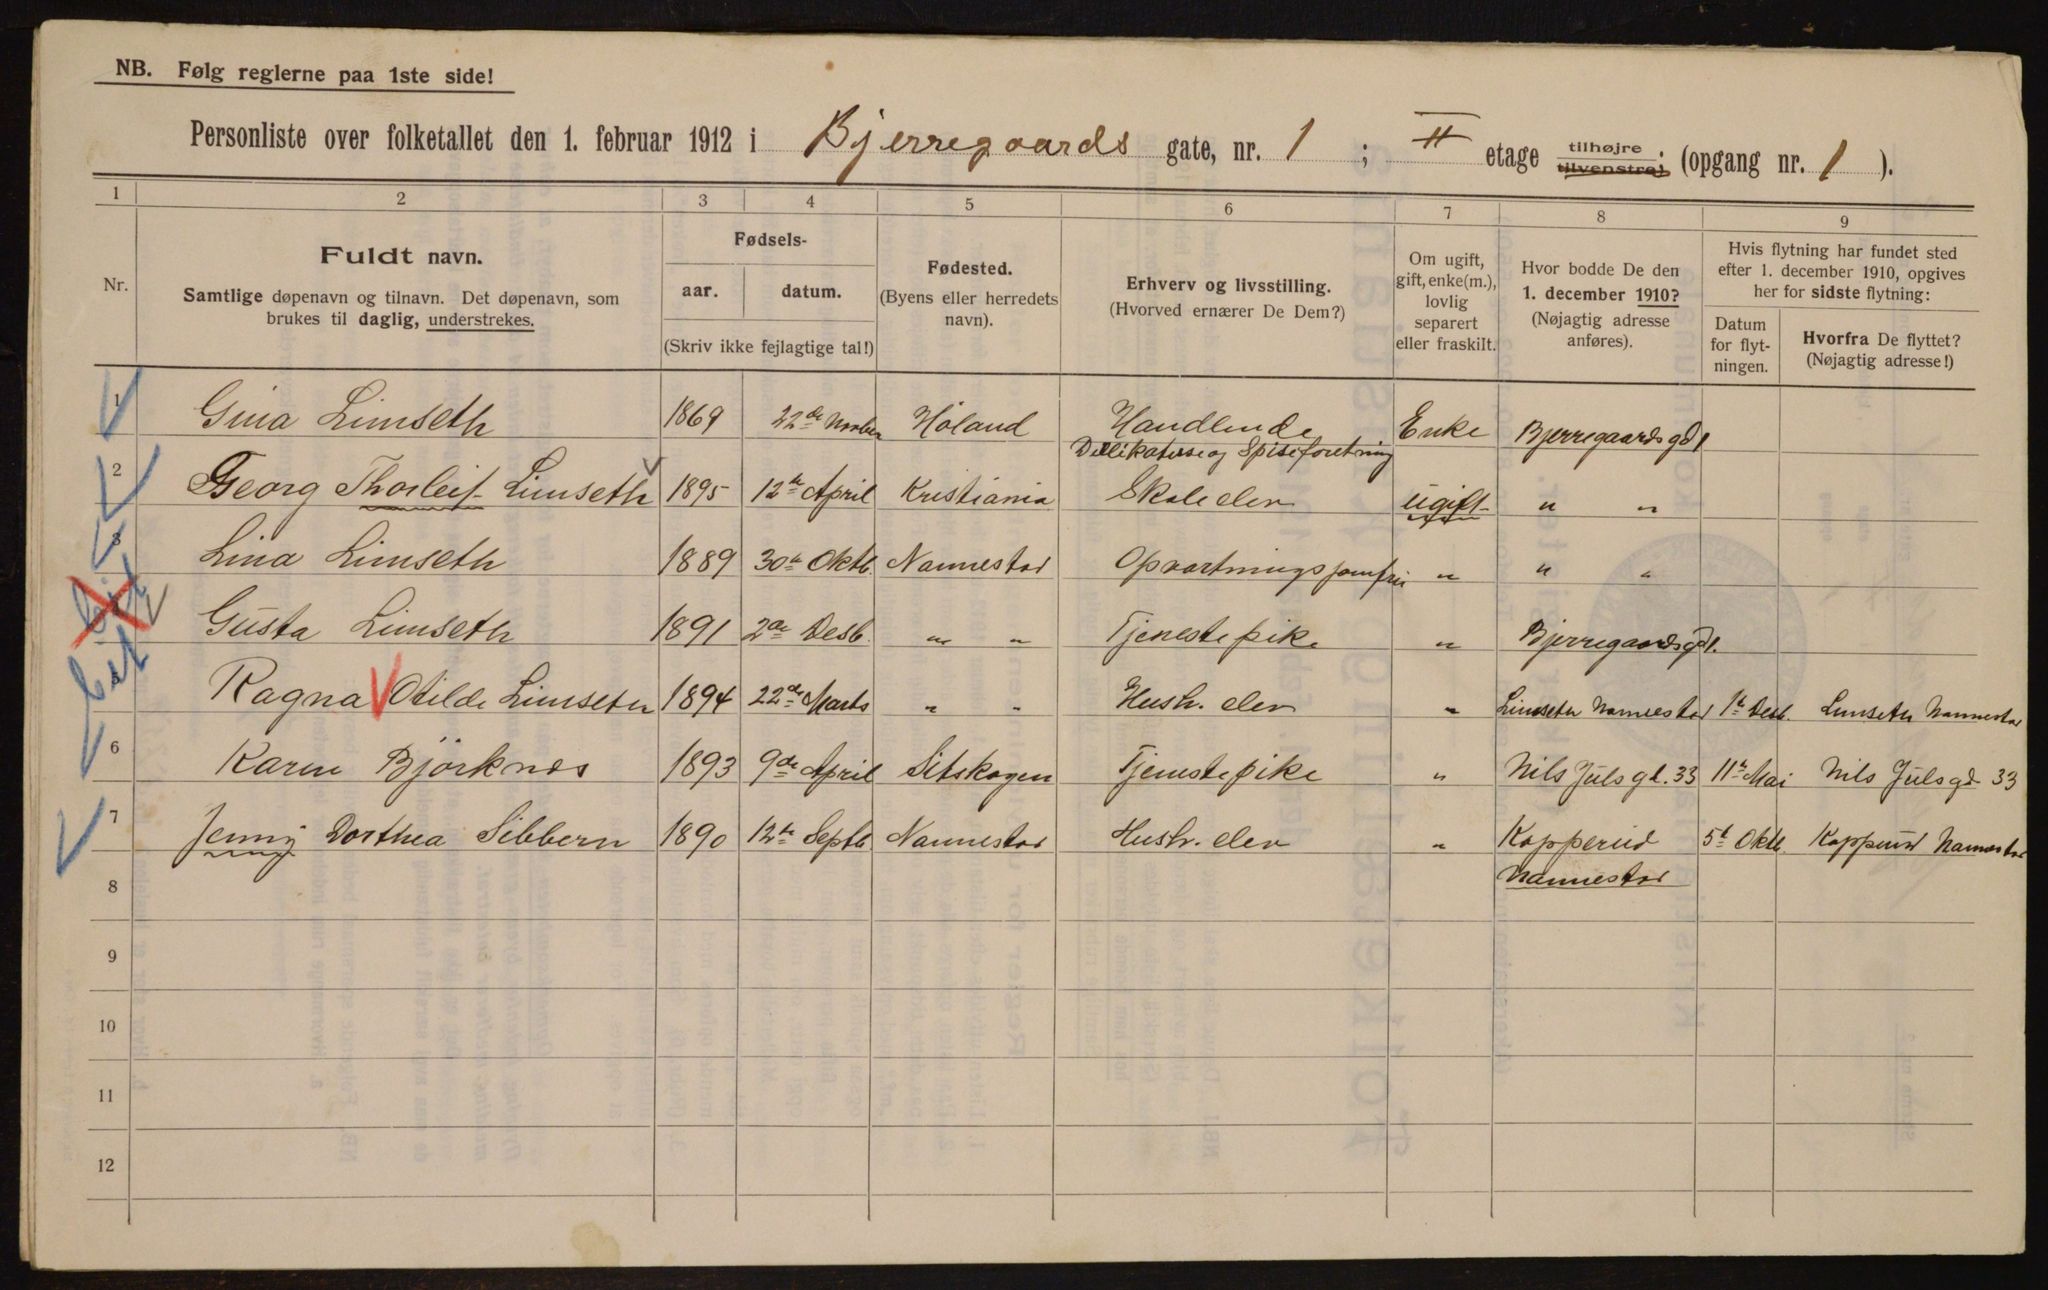 NB. Følg reglerne paa 1ste side!
Personliste over folketallet den 1. februar 1912 i Bjerregaards gate, nr. 1 ; II etage tilhøjre tilvenstre; (opgang nr. 1 ).
1 2 3 4 5 6 7 8 9
Nr.
Fuldt navn.
Samtlige døpenavn og tilnavn. Det døpenavn, som
brukes til daglig, understrekes.
Fødsels-
aar. datum.
(Skriv ikke fejlagtige tal!)
Fødested.
(Byens eller herredets
navn).
Erhverv og livsstilling.
(Hvorved ernærer De Dem?)
Om ugift,
gift, enke(m.),
lovlig
separert
eller fraskilt.
Hvor bodde De den
1. december 1910?
(Nøjagtig adresse
anføres).
Hvis flytning har fundet sted
efter 1. december 1910, opgives
her for sidste flytning:
Datum
for flyt-
ningen.
Hvorfra De flyttet?
(Nøjagtig adresse!)
1 Gina Limseth 1869 22de Novber Høland Handlende Enke Bjerregaards gd 1
Dellikatesse og Spiseforetning
2 Georg Thorleif Limseth 1895 12te April Kristiania Skoleelev ugift " "
3 Lina Limseth 1889 30te Oktb. Nannestad Opvartningsjomfru " " "
Gusta Limseth 1891 2de Desb. " " Tjenestepike " Bjerregaardsgd 1.
Ragna Otilde Limseth 1894 22de Marts " " Hush. elev " Limseth Nannestad 1te Desb. Limseth Nannestad
6 Karen Björknes 1893 9de April Sitskogen Tjenestepike " Nils Juls gd. 33 11te Mai Nils Juls gd 33
7 Jenny Dorthea Sibbern 1890 12te Septb. Nannestad Hush. elev " Kopperud 5t Oktb. Kopperud Nannestad
8 Nannestad
9
10
11
12